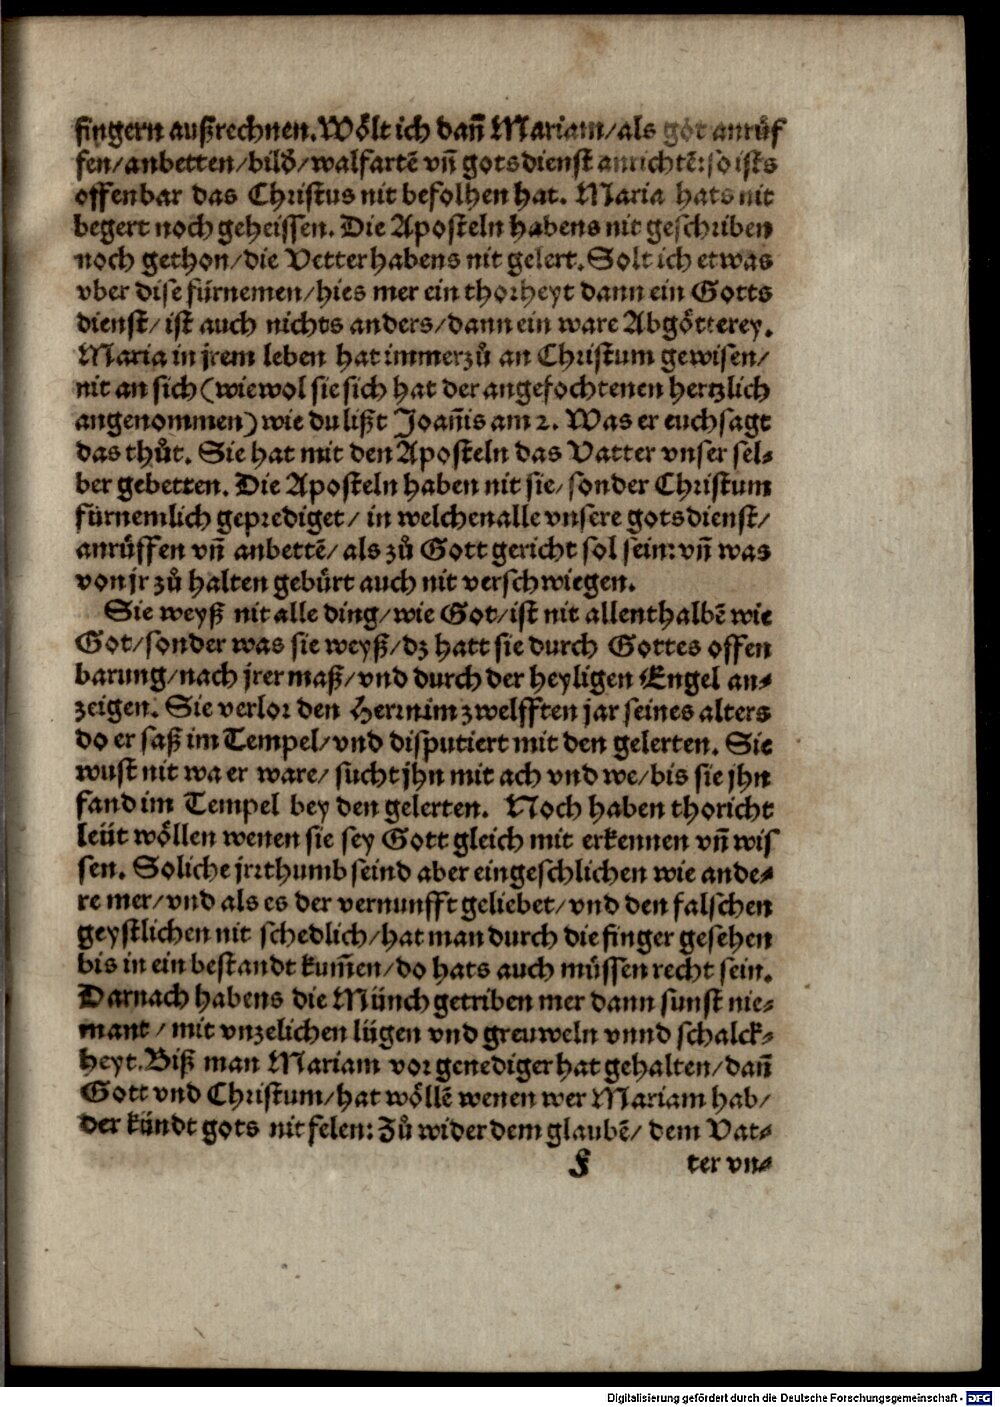 fingern außrechnen. Woͤlt ich dañ Mariam/ als got anruͤf
fen/ anbetten/ bild/ walfartē vñ gotsdienst anrichtē: so ists
offenbar das Christus nit befolhen hat. Maria hats nit
begert noch geheissen. Die Aposteln habens nit geschriben
noch gethon/ die Vetter habens nit gelert. Solt ich etwas
vber dise fürnemen/ hies mer ein thorheyt dann ein Gotts
dienst/ ist auch nichts anders/ dann ein ware Abgoͤtterey.
Maria in jrem leben hat immerzuͦ an Christum gewisen/
nit an sich (wiewol sie sich hat der angefochtenen hertzlich
angenommen) wie du lißt Joañis am 2. Was er euch sagt
das thuͦt. Sie hat mit den Aposteln das Vatter vnser sel⸗
ber gebetten. Die Aposteln haben nit sie/ sonder Christum
fürnemlich geprediget/ in welchen alle vnsere gotsdienst/
anruͤffen vñ anbettē/ als zuͦ Gott gericht sol sein: vñ was
von jr zuͦ halten gebürt auch nit verschwiegen.
Sie weyß nit alle ding/ wie Got/ ist nit allenthalbē wie
Got/ sonder was sie weyß/ dz hatt sie durch Gottes offen
barung/ nach jrer maß/ vnd durch der heyligen Engel an⸗
zeigen. Sie verlor den Herrn im zwelfften jar seines alters
do er saß im Tempel/ vnd disputiert mit den gelerten. Sie
wust nit wa er ware/ sucht jhn mit ach vnd we/ bis sie jhn
fand im Tempel bey den gelerten. Noch haben thoricht
leüt woͤllen wenen sie sey Gott gleich mit erkennen vñ wis
sen. Soliche jrrthumb seind aber eingeschlichen wie ande⸗
re mer/ vnd als es der vernunfft geliebet/ vnd den falschen
geystlichen nit schedlich/ hat man durch die finger gesehen
bis in ein bestandt kum̃en/ do hats auch müssen recht sein.
Darnach habens die Münch getriben mer dann sunst nie⸗
mant/ mit vnzelichen lügen vnd greuweln vnnd schalck⸗
heyt. Biß man Mariam vor genediger hat gehalten/ dañ
Gott vnd Christum/ hat woͤllē wenen wer Mariam hab/
der kündt gots nit felen: Zuͦ wider dem glaubē/ dem Vat⸗
F ter vn⸗
Digitalisierung gefördert durch die Deutsche Forschungsgemeinschaft - DFG